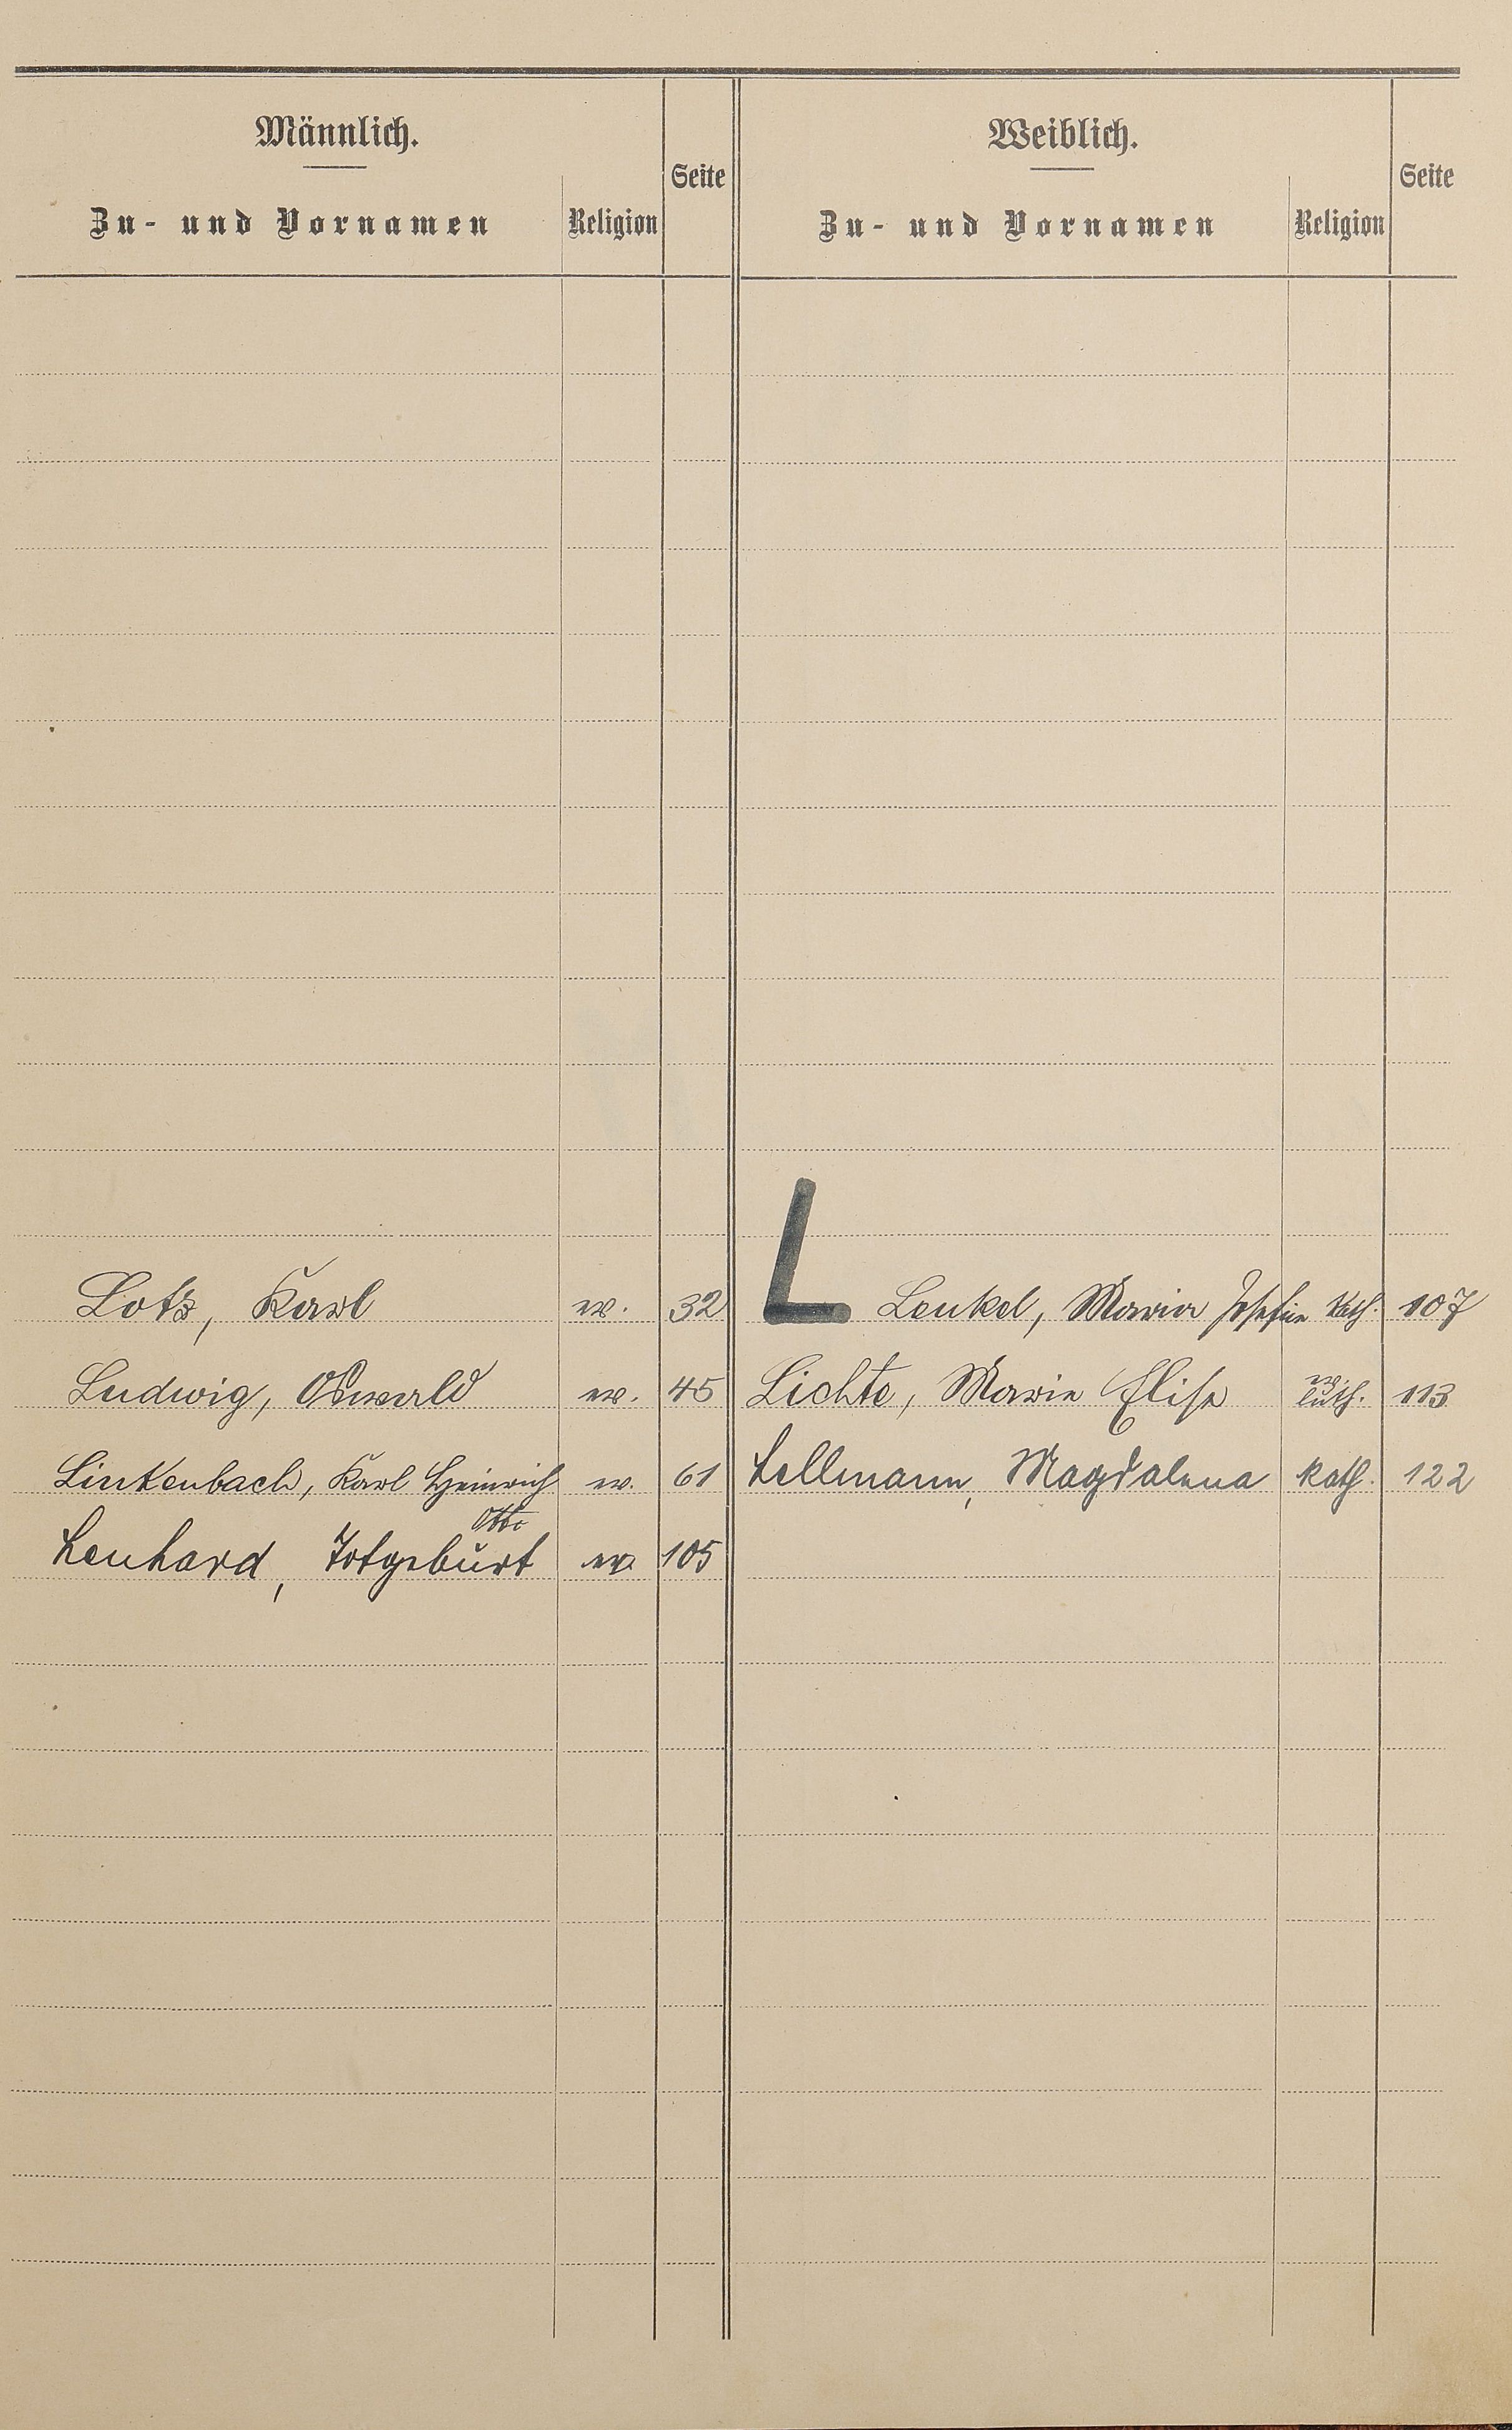 Männlich.
Zu- und Vornamen Religion Seite
Weiblich.
Zu- und Vornamen Religion Seite
L
Lotz, Karl ev. 32
Ludwig, Oswald ev. 45
Linkenbach, Karl Heinrich ev. 61
Otto
Lenhard, Totgebürt ev. 105
Lenkel, Maria Josefin kath. 107
Lichte, Marie Elise ev. luth. 113
Lellmann, Magdalena kath. 122